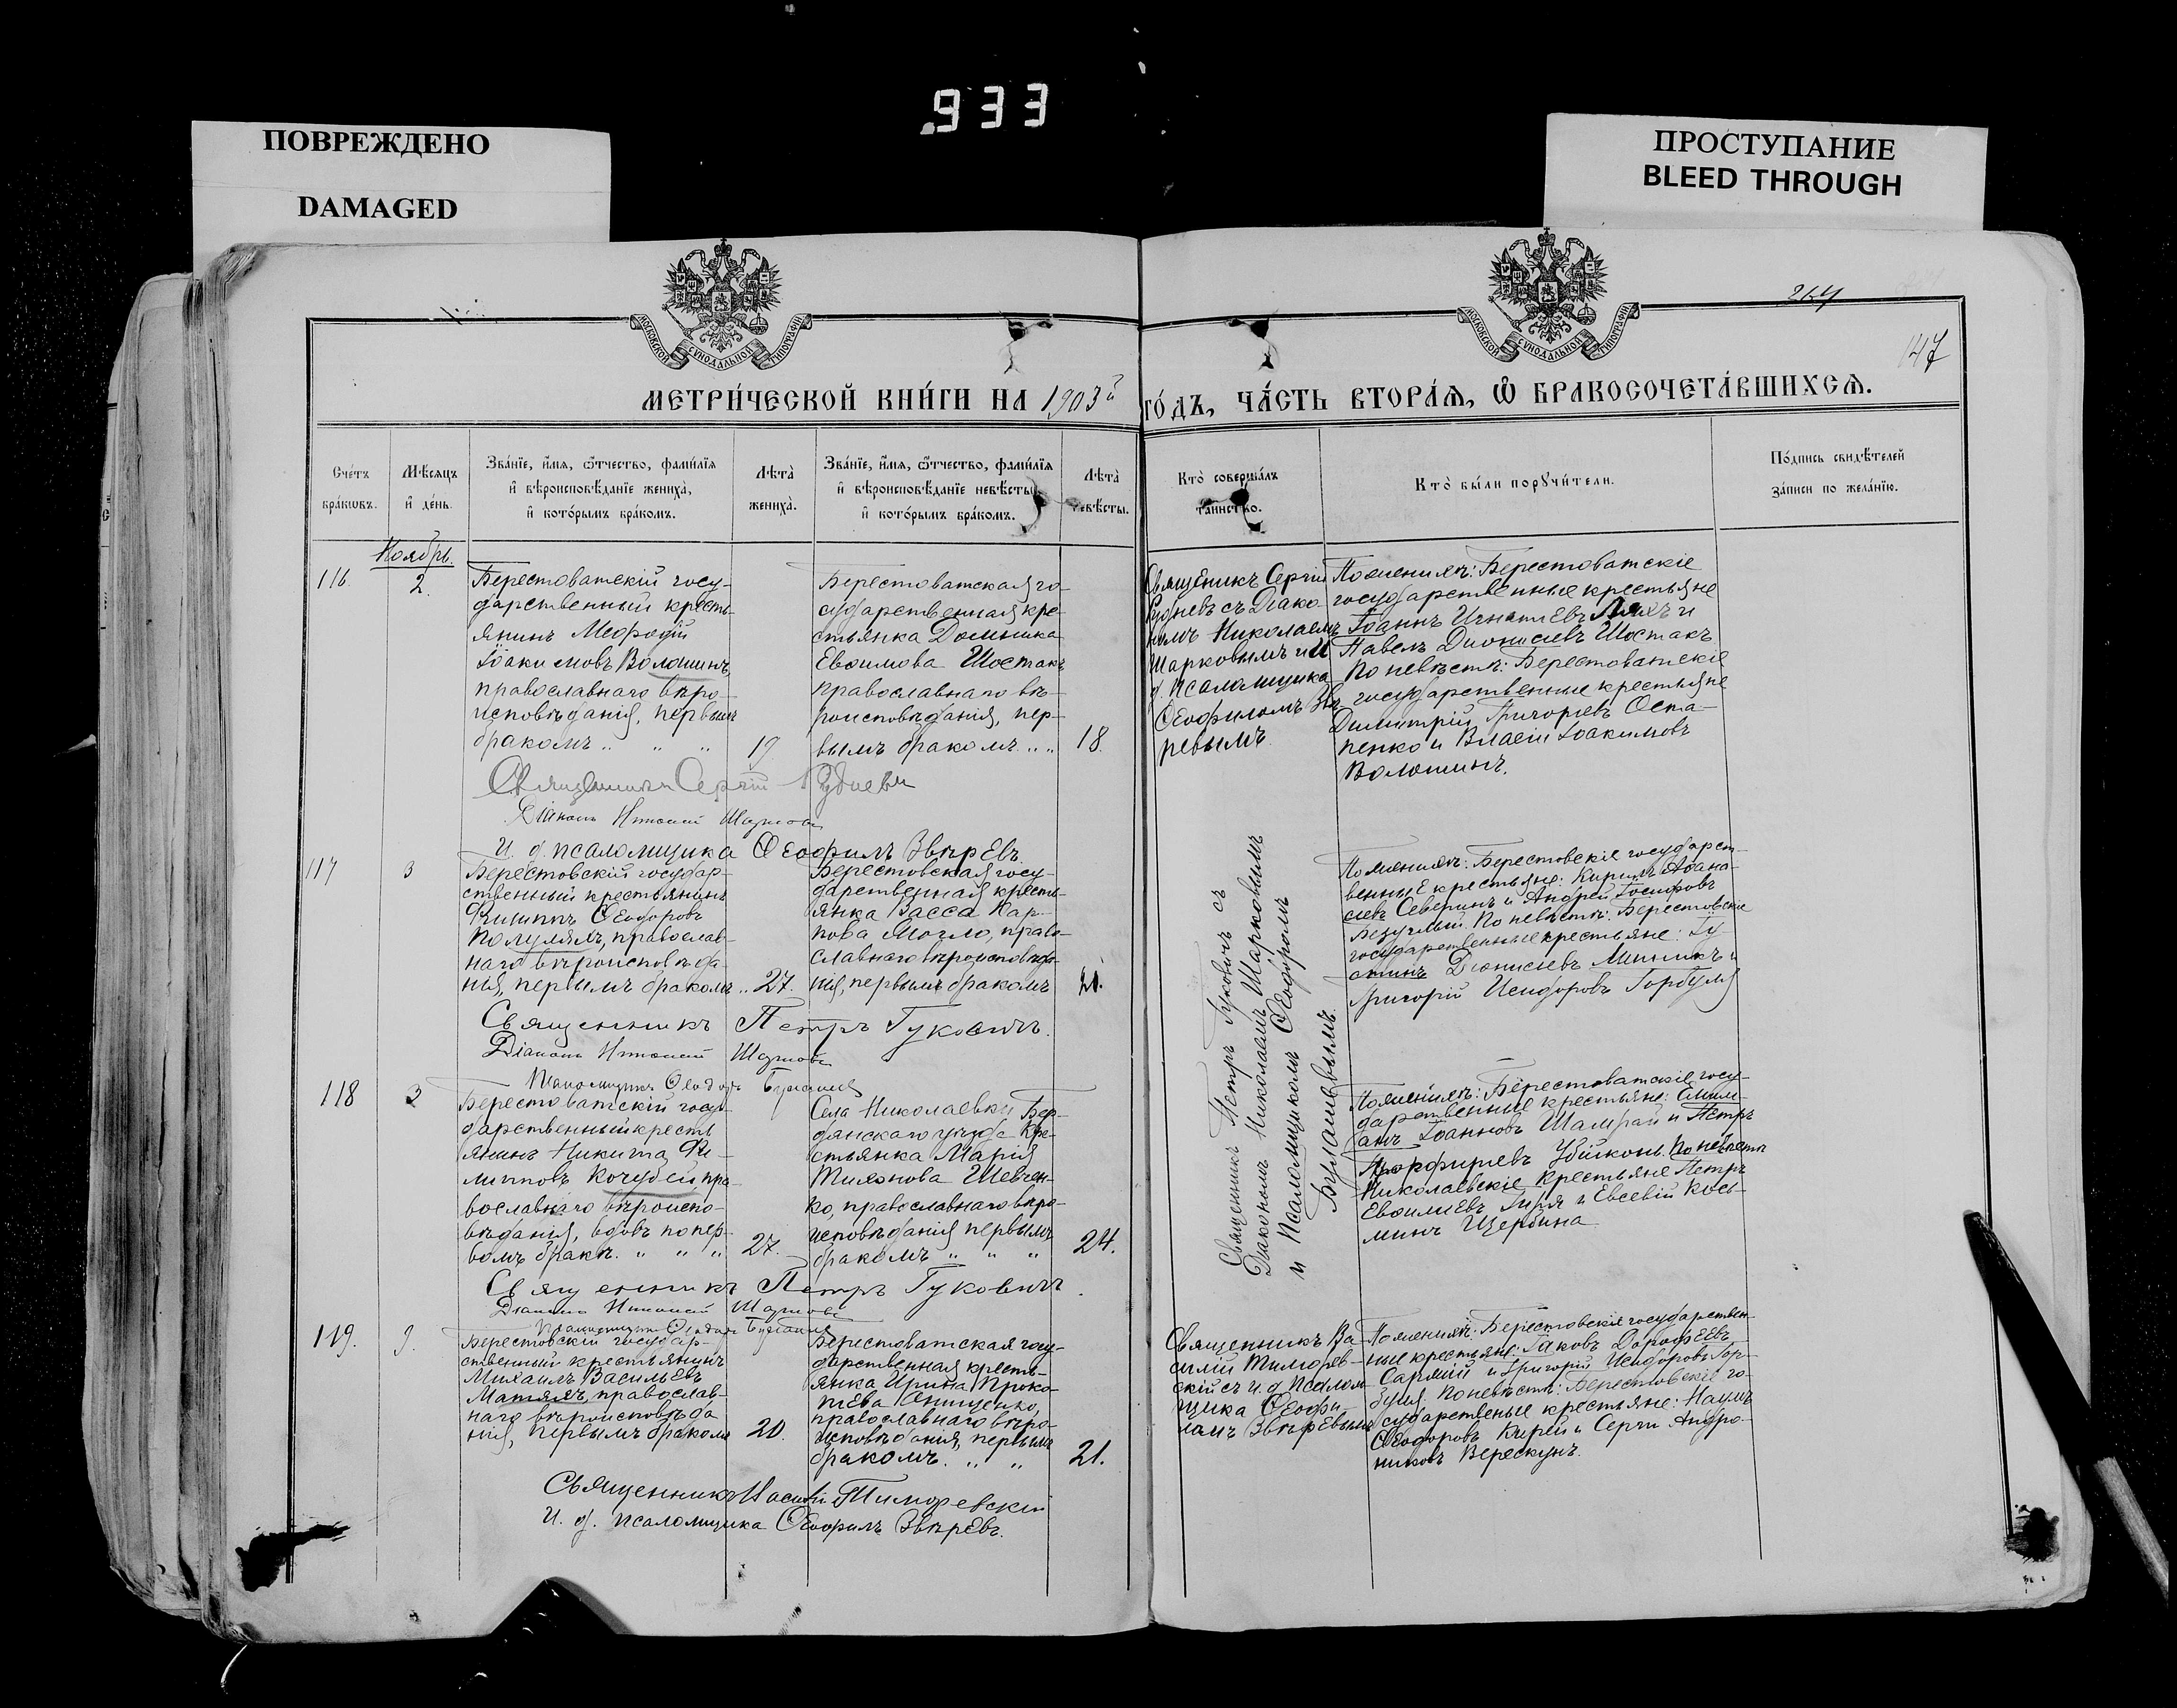 933
ПОВРЕЖДЕНО
DAMAGED
ПРОСТУПАНИЕ
BLEED THROUGH
МОСКОВСКОЙ СѴНОДАЛЬНОЙ ТИПОГРАФІИ
МОСКОВСКОЙ СѴНОДАЛЬНОЙ ТИПОГРАФІИ
264
147
МЕТРИ́ЧЕСКОЙ КНИ́ГИ НА 1903й ГО́ДЪ, ЧА́СТЬ ВТОРА́Я, Ѿ БРАКОСОЧЕТА́ВШИХСЯ.
Сче́тъ
бра́кѡвъ.
Мѣ́сяцъ
и҆ де́нь.
Зва́нїе, и҆́мя, ѻ҆́тчество, фами́лїя
и҆ вѣроисповѣ́данїе жениха̀,
и҆ кото́рымъ бра́комъ.
Лѣ́та̀
жениха̀.
Зва́нїе, и҆́мя, ѻ҆́тчество, фами́лїя
и҆ вѣроисповѣ́данїе невѣ́сты,
и҆ кото́рымъ бра́комъ.
Лѣ́та̀
невѣ́сты.
Кто̀ соверша́лъ
та́инство.
Кто̀ бы́ли порꙋчи́тели.
По́дпись свидѣ́телей
за́писи по жела́нїю.
Ноябрь.
116.
2.
Берестоватскій госу-
дарственный кресть-
янинъ Меѳодій
Іоакимовъ Волошинъ,
православнаго вѣро-
исповѣданія, первымъ
бракомъ " " "
19.
Берестоватская го-
сударственная кре-
стьянка Домника
Евѳимова Шостакъ
православнаго вѣ-
роисповѣданія, пер-
вымъ бракомъ " "
18.
Священникъ Сергій
Рудневъ съ Діако-
номъ Николаемъ
Шарковымъ и И.
д. псаломщика
Ѳеофиломъ Звѣ-
ревымъ.
По женихѣ: Берестоватскіе
государственные крестьяне
Іоаннъ Игнатіевъ Ляхъ и
Павелъ Діонисіевъ Шостакъ
По невѣстѣ: Берестоватскіе
государственные крестьяне
Димитрій Григорьевъ Оста-
пенко и Власій Іоакимовъ
Волошинъ.
Священникъ Сергій Рудневъ
Діаконъ Николай Шарковъ
И. д. псаломщика Ѳеофилъ Звѣревъ.
117
3
Берестовскій государ-
ственный крестьянинъ
Филиппъ Ѳеодоровъ
Полуляхъ, православ-
наго вѣроисповѣда-
нія, первымъ бракомъ "
27.
Берестовская госу-
дарственная кресть-
янка Васса Кар-
пова Могло, право-
славнаго вѣроисповѣда-
нія, первымъ бракомъ
21.
Священникъ Петръ Гуковичъ съ
Діакономъ Николаемъ Шарковымъ
и Псаломщикомъ Ѳеодоромъ
Булашевымъ.
По женихѣ: Берестовскіе государст-
венные крестьяне: Кириллъ Аѳана-
сіевъ Северинъ и Андрей Іосифовъ
Безуглый. По невѣстѣ: Берестовскіе
государственные крестьяне: Іу-
стинъ Діонисіевъ Минникъ и
Григорій Исидоровъ Горбуля
Священникъ Петръ Гуковичъ.
Діаконъ Николай Шарковъ
Псаломщикъ Ѳеодоръ Булашевъ
118
3
Берестоватскій госу-
дарственный кресть
янинъ Никита Фи-
липповъ Кочубей, пра-
вославнаго вѣроиспо-
вѣданія, вдовъ по пер-
вомъ бракѣ. " " "
27.
Села Николаевки Бер-
дянскаго уѣзда Кре-
стьянка Марія
Тихонова Шевчен-
ко, православнаго вѣро-
исповѣданія первымъ
бракомъ " " "
24.
По женихѣ: Берестоватскіе госу-
дарственные крестьяне: Емили-
анъ Іоанновъ Шамрай и Петръ
Порфирьевъ Убійконь. По невѣстѣ
Николаевскіе крестьяне Петръ
Евѳиміевъ Гиря и Евсевій Кось-
минъ Щербина
Священникъ Петръ Гуковичъ.
Діаконъ Николай Шарковъ
Псаломщикъ Ѳеодоръ Булашевъ
119.
9.
Берестовскій государ-
ственный крестьянинъ
Михаилъ Васильевъ
Матяхъ, православ-
наго вѣроисповѣда
нія, первымъ бракомъ
20.
Берестоватская госу-
дарственная кресть-
янка Ирина Проко-
піева Онищенко,
православнаго вѣро-
исповѣданія, первымъ
бракомъ. " "
21.
Священникъ Ва-
силій Тимоѳев-
скій съ И. д. Псалом-
щика Ѳеофи-
ломъ Звѣревымъ
По женихѣ: Берестовскіе государствен-
ные крестьяне: Іаковъ Дороѳеевъ
Сармій и Григорій Исидоровъ Гор-
буля, По невѣстѣ: Берестовскіе го-
сударственые крестьяне: Наумъ
Ѳеодоровъ Кирей и Сергій Андро-
никовъ Верескунъ.
Священникъ Василій Тимоѳевскій
И. д. псаломщика Ѳеофилъ Звѣревъ.